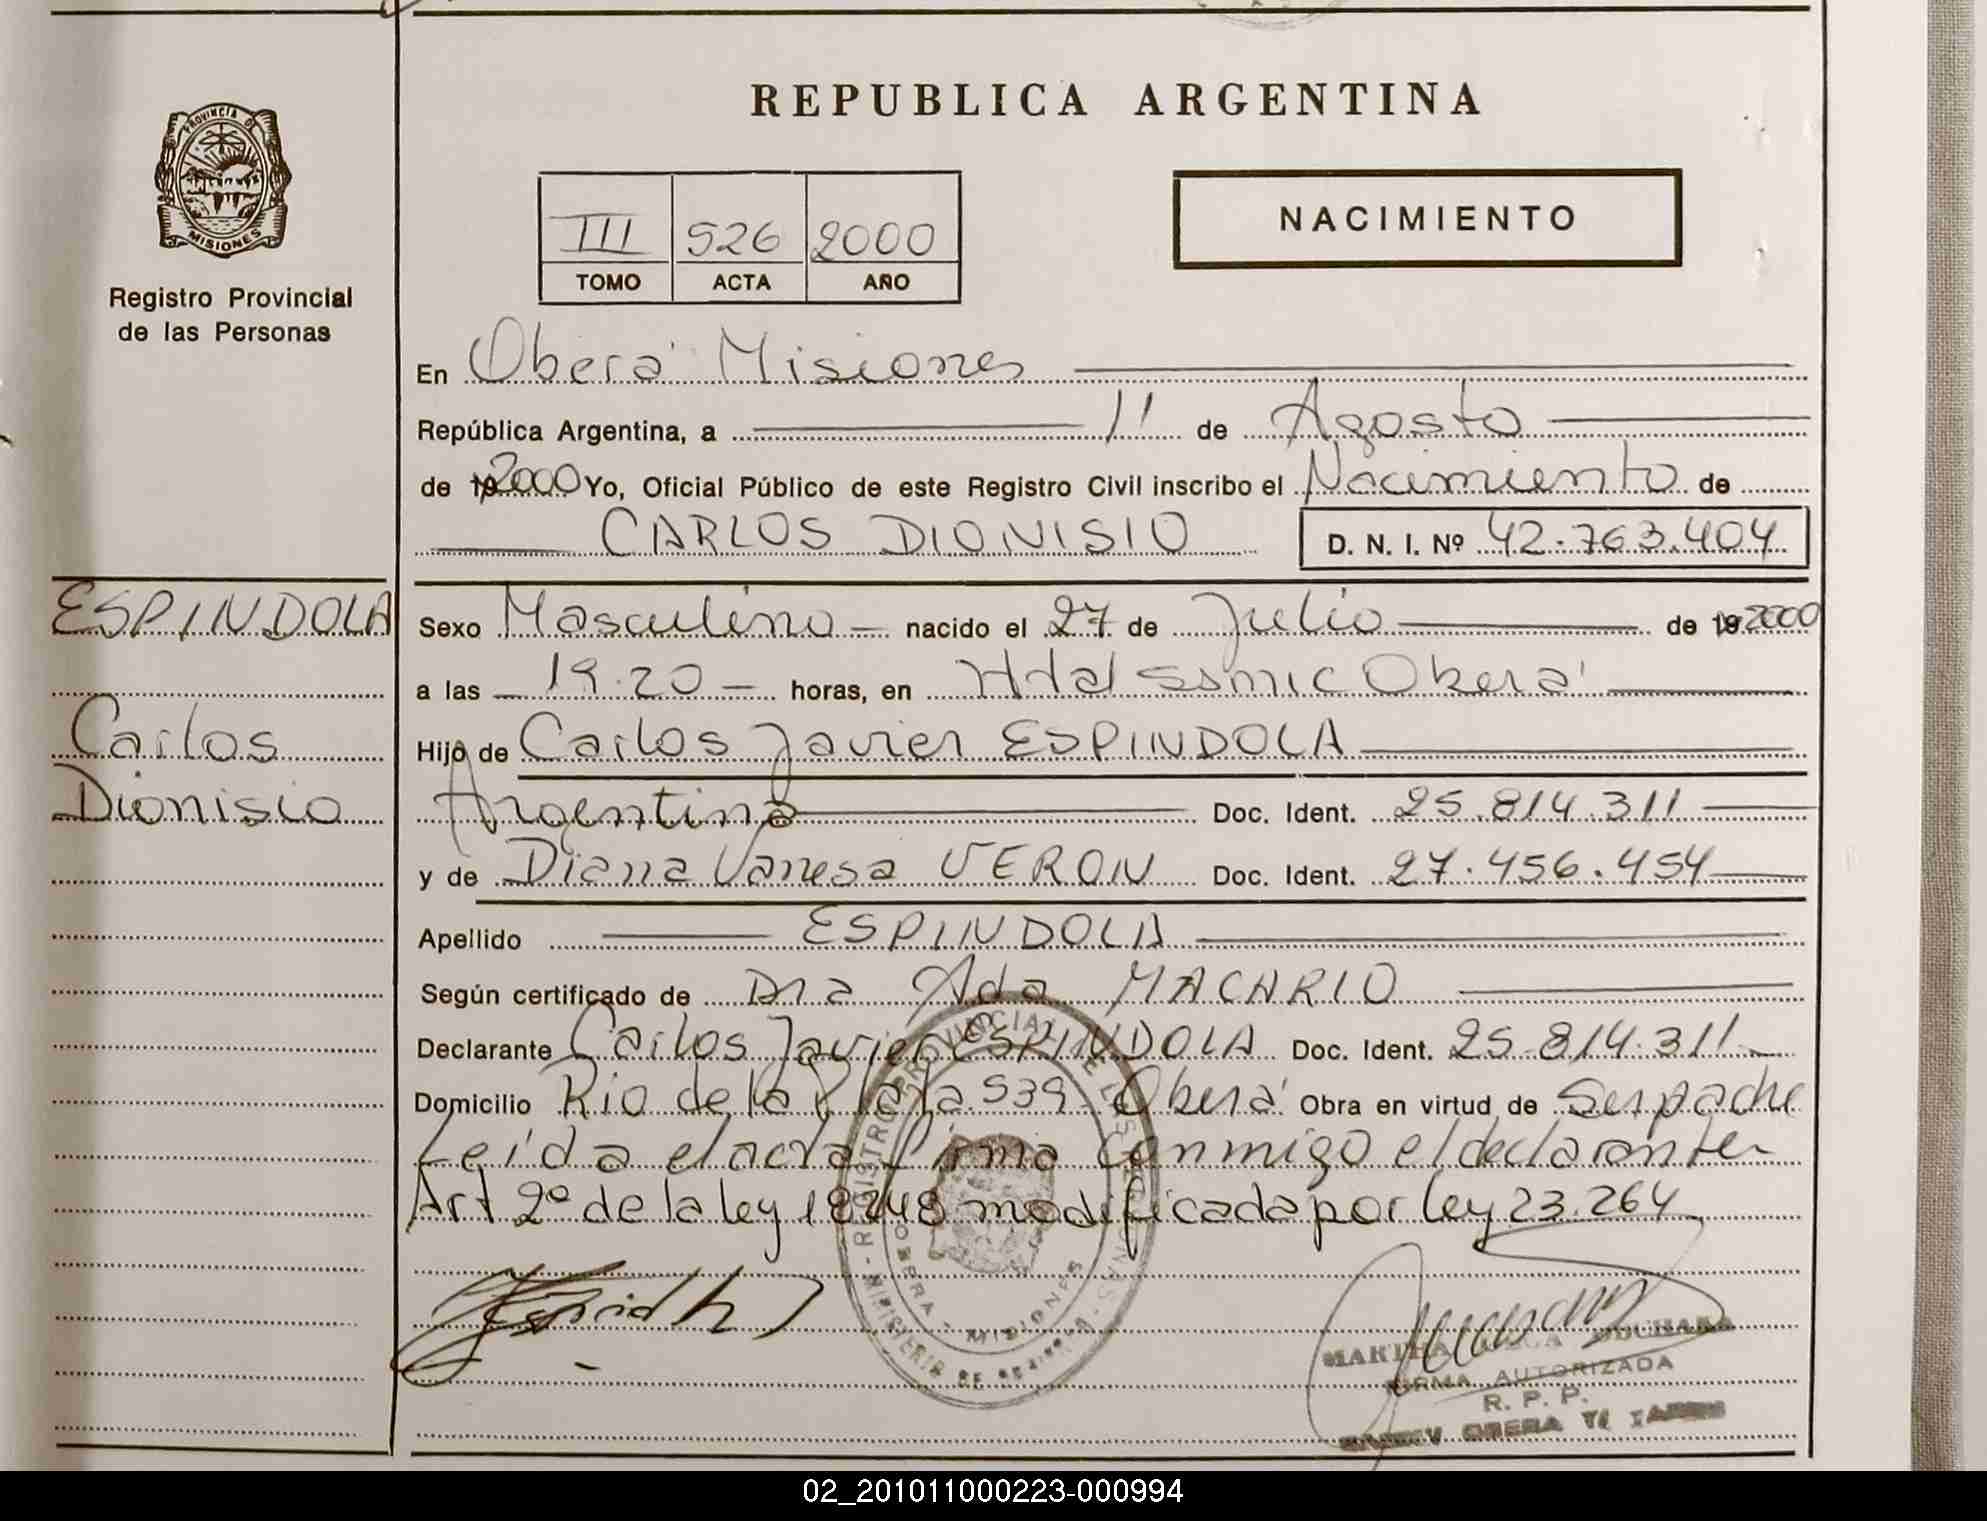 REPUBLICA ARGENTINA
PROVINCIA DE
MISIONES
Registro Provincial
de las Personas
III 526 2000
TOMO ACTA AÑO
NACIMIENTO
En Oberá Misiones
República Argentina, a 11 de Agosto
de 2000 Yo, Oficial Público de este Registro Civil inscribo el Nacimiento de
CARLOS DIONISIO D. N. I. Nº 42.763.404
ESPINDOLA
Carlos
Dionisio
Sexo Masculino nacido el 27 de Julio de 19 2000
a las 19.20 horas, en Oberá
Hijo de Carlos Javier ESPINDOLA
Argentina Doc. Ident. 25.814.311
y de Diana Vanesa VERON Doc. Ident. 27.456.454
Apellido ESPINDOLA
Según certificado de Dra Ada MACARIO
Declarante Carlos Javier ESPINDOLA Doc. Ident. 25.814.311
Domicilio Rio de la Plata 539 Oberá Obra en virtud de Ser padre
Leída el acta firma conmigo el declarante
Art 2º de la ley 18248 modificada por ley 23.264
REGISTRO PROVINCIAL DE LAS PERSONAS
OBERA - MISIONES
MARTHA
FIRMA AUTORIZADA
R. P. P.
OBERA
02_201011000223-000994